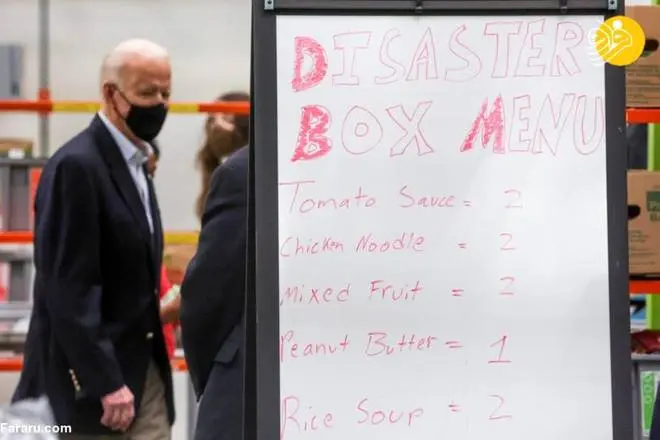 DISASTER
BOX MENU
Tomato Sauce = 2
Chicken Noodle = 2
Mixed Fruit = 2
Peanut Butter = 1
Rice Soup = 2
Fararu.com